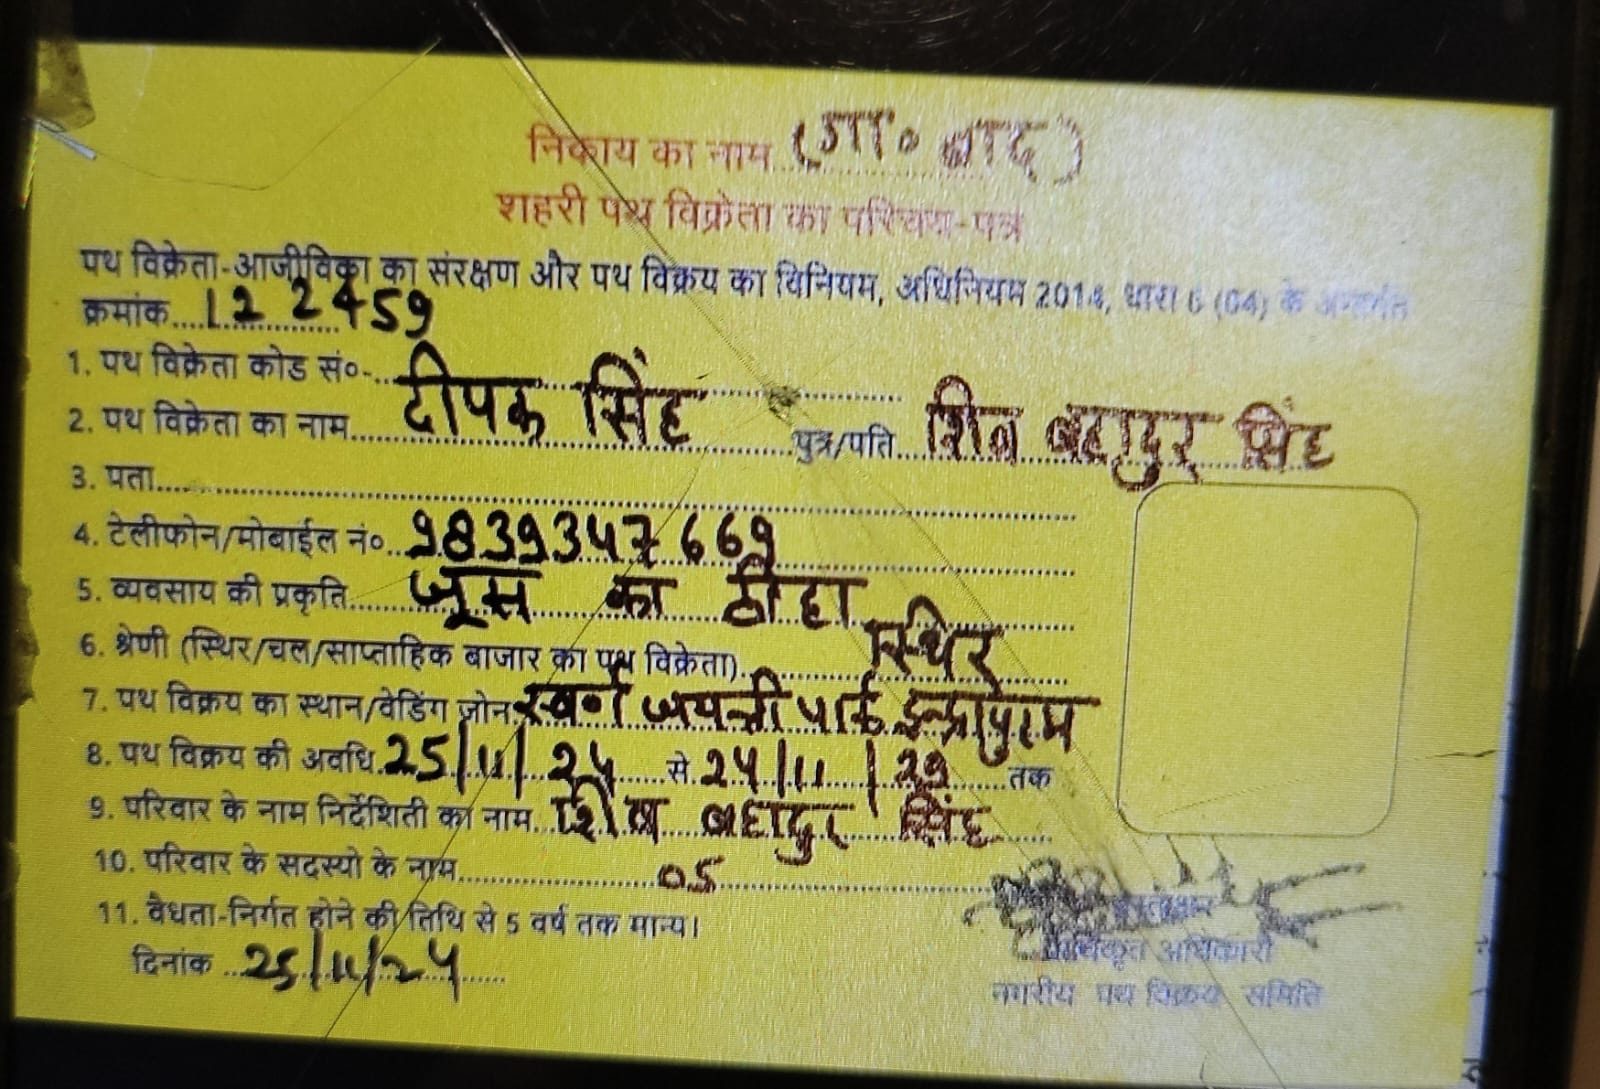 निकाय का नाम (गा॰ बाद)
शहरी पथ विक्रेता का परिचय-पत्र
पथ विक्रेता-आजीविका का संरक्षण और पथ विक्रय का विनियम, अधिनियम 2014, धारा 6 (04) के अन्तर्गत
क्रमांक....122459
1. पथ विक्रेता कोड सं०-
2. पथ विक्रेता का नाम दीपक सिंह पुत्र/पति शिव बहादुर सिंह
3. पता
4. टेलीफोन/मोबाईल नं० 9839347669
5. व्यवसाय की प्रकृति जूस का ठीहा
6. श्रेणी (स्थिर/चल/साप्ताहिक बाजार का पथ विक्रेता) स्थिर
7. पथ विक्रय का स्थान/वेडिंग ज़ोन स्वर्ण जयन्ती पार्क इन्द्रापुरम
8. पथ विक्रय की अवधि 25/11/24 से 24/11/29 तक
9. परिवार के नाम निर्देशिती का नाम शिव बहादुर सिंह
10. परिवार के सदस्यो के नाम 05
11. वैधता-निर्गत होने की तिथि से 5 वर्ष तक मान्य।
हस्ताक्षर
दिनांक 25/11/24
प्राधिकृत अधिकारी
नगरीय पथ विक्रय समिति